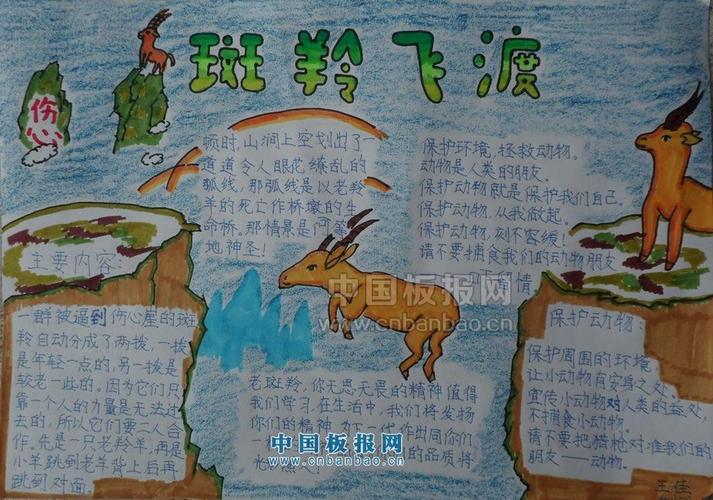 斑羚飞渡
伤心
顿时,山涧上空划出了一
道道令人眼花缭乱的
弧线,那弧线是以老羚
羊的死亡作桥墩的生
命桥,那情景是何等
地神圣!
保护环境,拯救动物。
动物是人类的朋友。
保护动物就是保护我们自己。
保护动物,从我做起。
保护动物,刻不容缓!
请不要捕食我们的动物朋友
情
主要内容:
一群被逼到伤心崖的斑
羚自动分成了两拨,一拨
是年轻一点的,另一拨是
较老一些的。因为它们只
靠一个人的力量是无法过
去的,所以它们要二人合
作。先是一只老羚羊,再是
小羊跳到老羊背上后再
跳到对面。
中国板报网
www.cnbanbao.cn
老斑羚,你无思无畏的精神值得
我们学习,在生活中,我们将发扬
你们的精神,为下一代作出同你们
一
的品质将
光
中国板报网
www.cnbanbao.cn
保护动物:
保护周围的环境,
让小动物有安身之处。
宣传小动物对人类的益处,
不捕食小动物。
请不要把猎枪对准我们的
朋友——动物。